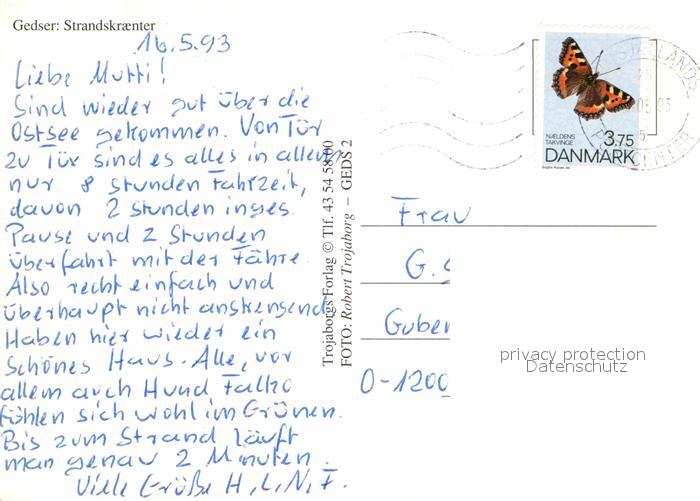 Gedser: Strandskrænter
16.5.93
Liebe Mutti!
Sind wieder gut über die
Ostsee gekommen. Von Tür
zu Tür sind es alles in allem
nur 8 Stunden Fahrzeit,
davon 2 Stunden insges.
Pause und 2 Stunden
Überfahrt mit der Fähre.
Also recht einfach und
überhaupt nicht anstrengend.
Haben hier wieder ein
schönes Haus. Alle, vor
allem auch Hund Falko
fühlen sich wohl im Grünen.
Bis zum Strand läuft
man genau 2 Minuten.
Viele Grüße H, L, N, F.
Trojaborgs Forlag © Tlf. 43 54 58 00
FOTO: Robert Trojaborg – GEDS 2
NÆLDENS
TAKVINGE
3.75
DANMARK
Frau
G.
Guben
O-1200
privacy protection
Datenschutz